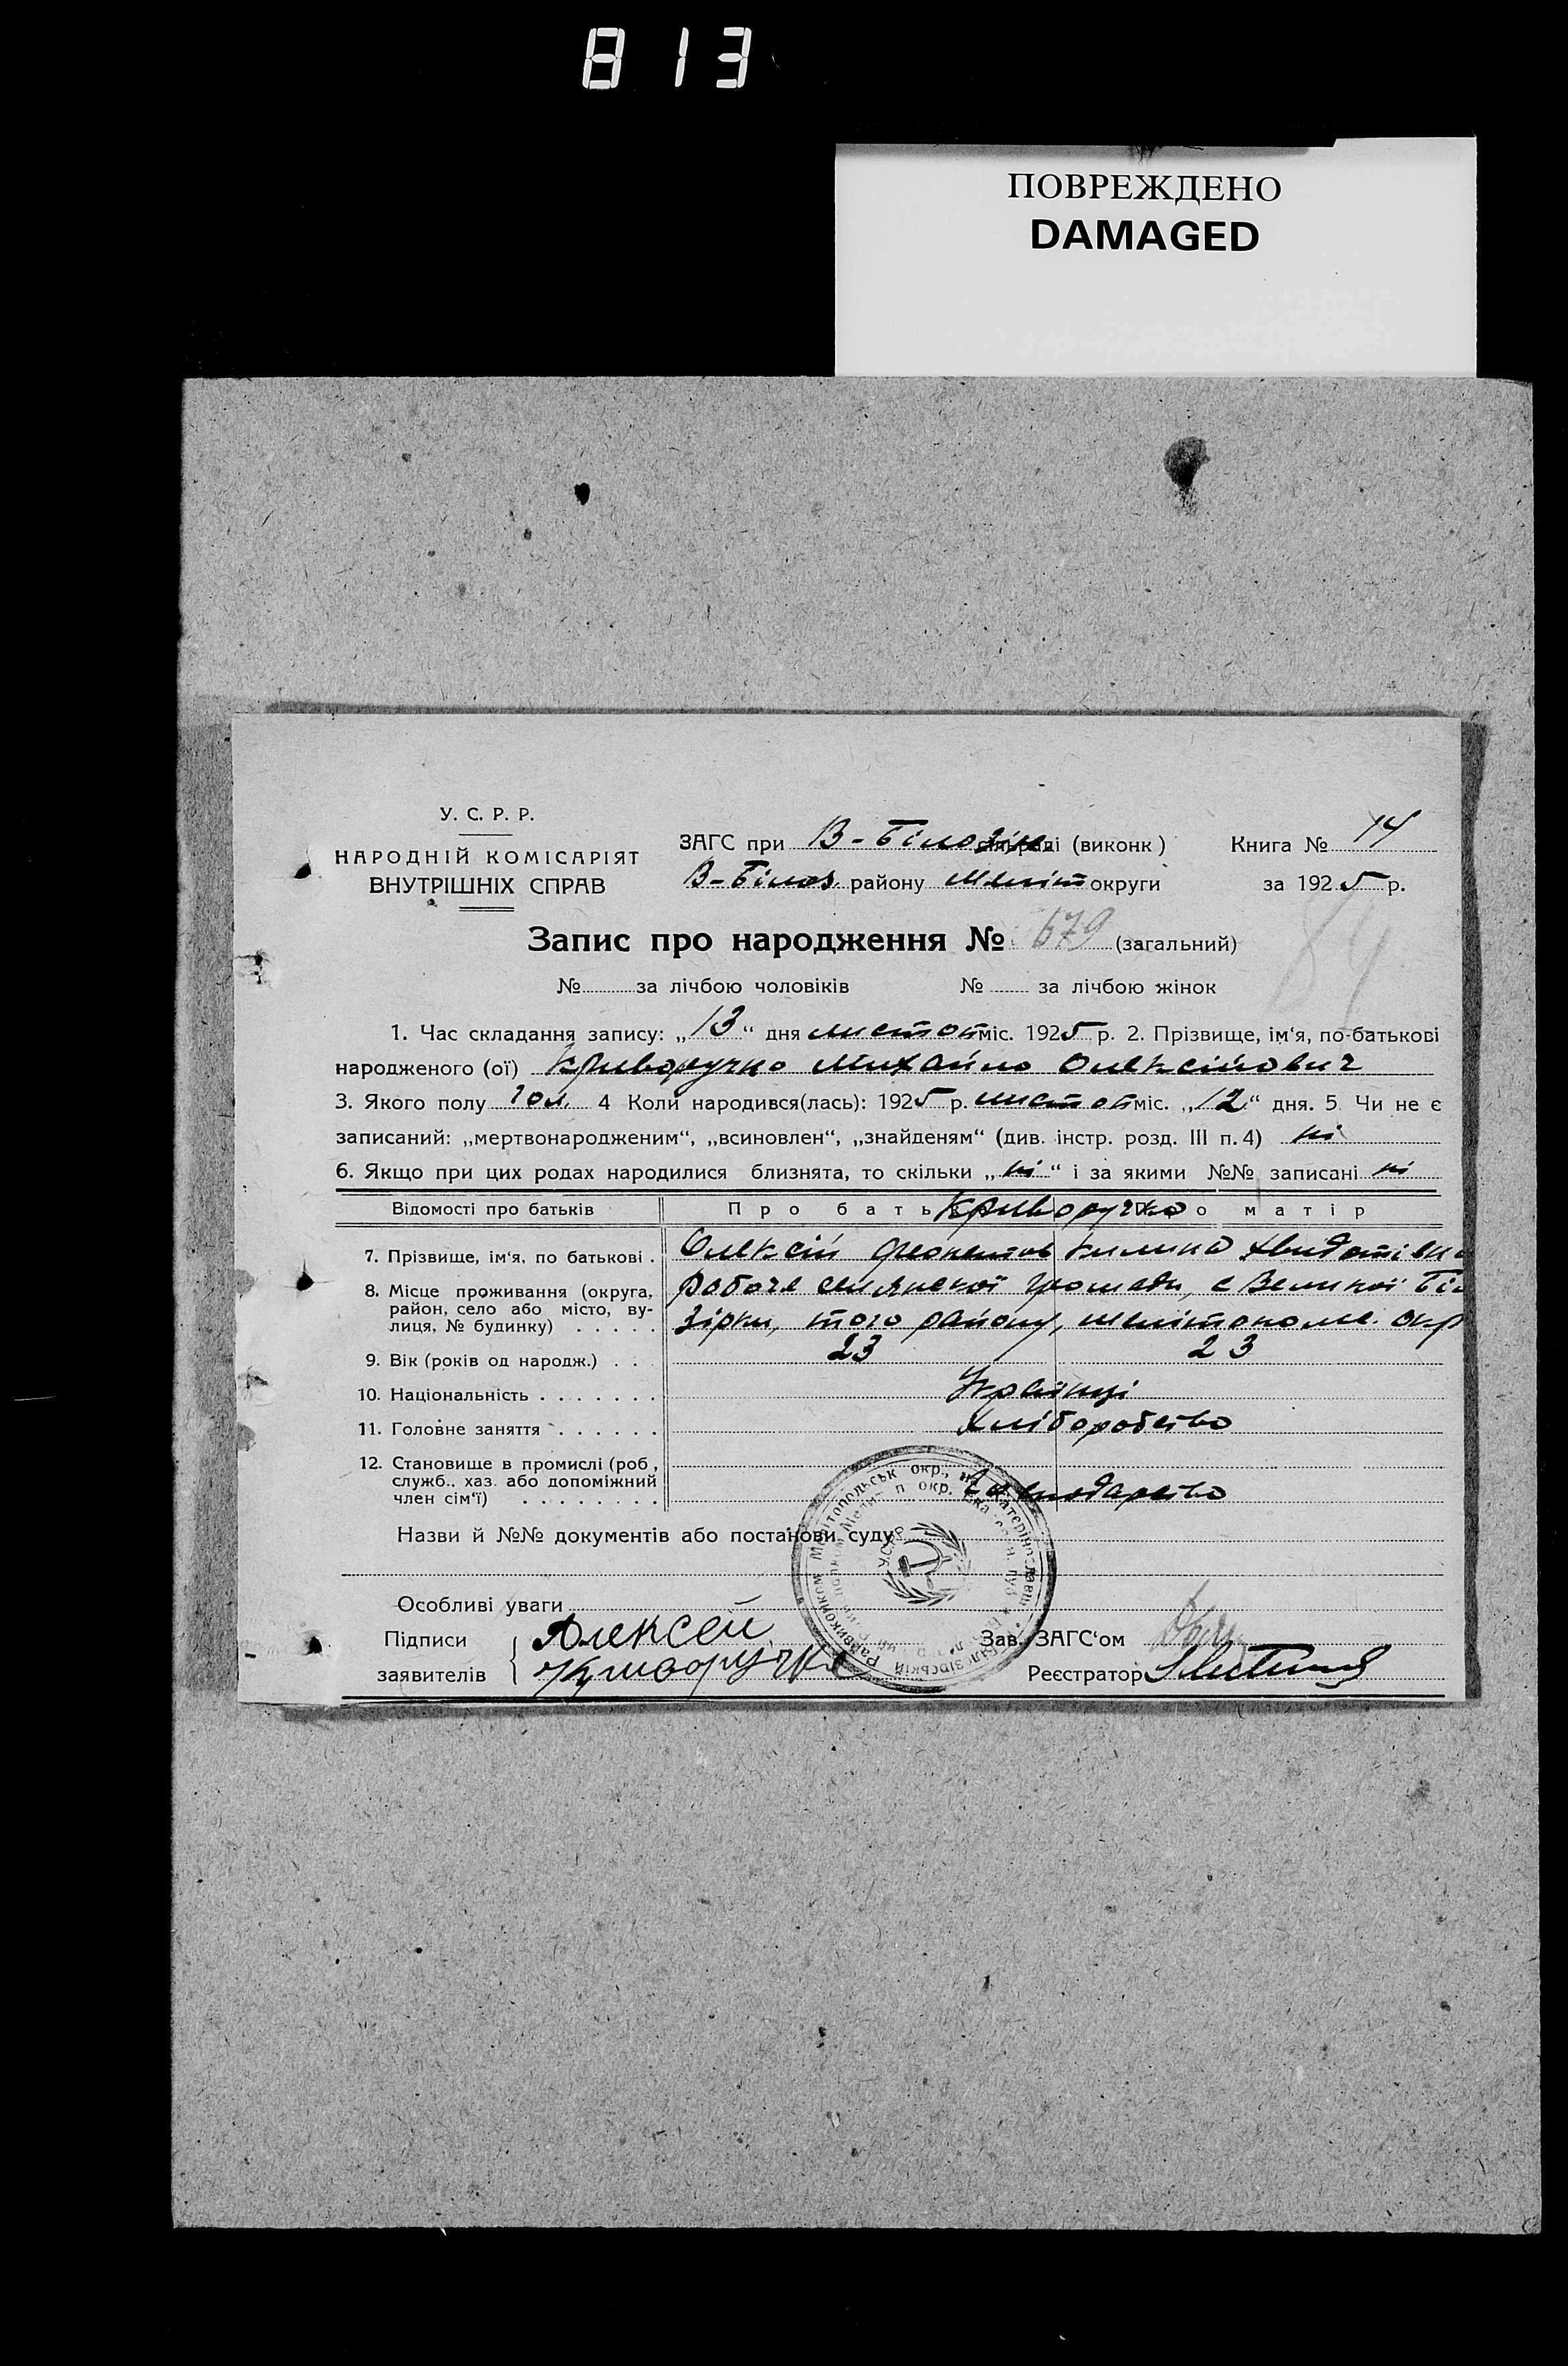 813
ПОВРЕЖДЕНО
DAMAGED
У. С. Р. Р.
НАРОДНІЙ КОМІСАРІЯТ
ВНУТРІШНІХ СПРАВ
ЗАГС при В-Білозірк раді (виконк) Книга № 14
В-Білоз. району Меліт округи за 1925 р.
Запис про народження № 679 (загальний)
84
№ за лічбою чоловіків № за лічбою жінок
1. Час складання запису: „13“ дня листоп міс. 1925 р. 2. Прізвище, ім‘я, по-батькові
народженого (ої) Криворучко Михайло Олексійович
3. Якого полу чол. 4 Коли народився(лась): 1925 р. листоп міс. „12“ дня. 5 Чи не є
записаний: „мертвонародженим“, „всиновлен“, „знайденям“ (див. інстр. розд. III п. 4) ні
6. Якщо при цих родах народилися близнята, то скільки „ні“ і за якими №№ записані ні
Відомості про батьків Про бать Криворучко о матір
7. Прізвище, ім‘я, по батькові . Олексій Килина
8. Місце проживання (округа, район, село або місто, вулиця, № будинку) . . . . .
Робоче селянської громади, с Великої Біл
зірки, того району, мелітопольс. окр
9. Вік (років од народж.) . . . 23 23
10. Національність . . . . . . . Українці
11. Головне заняття . . . . . . Хліборобство
12. Становище в промислі (роб, служб.. хаз. або допоміжний член сім‘ї) . . . . . . . .
Назви й №№ документів або постанови суду
УСРР
Особливі уваги
Підписи Алексей Зав. ЗАГС‘ом
заявителів Криворучко Реєстратор